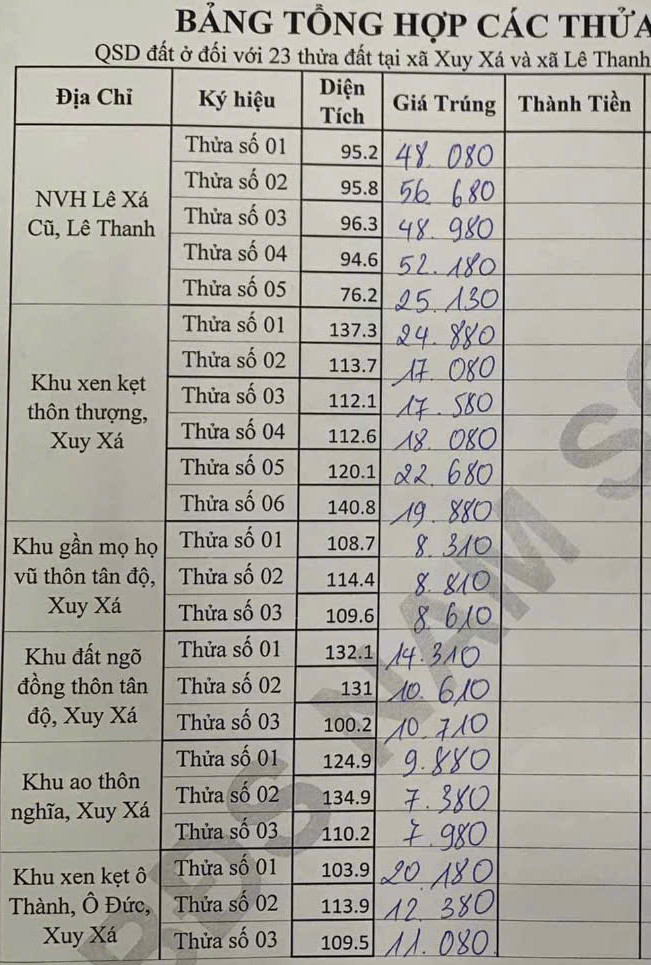 BẢNG TỔNG HỢP CÁC THỬA
QSD đất ở đối với 23 thửa đất tại xã Xuy Xá và xã Lê Thanh
Địa Chỉ Ký hiệu Diện Tích Giá Trúng Thành Tiền
NVH Lê Xá Cũ, Lê Thanh
Thửa số 01 95.2 48.080
Thửa số 02 95.8 56.680
Thửa số 03 96.3 48.980
Thửa số 04 94.6 52.180
Thửa số 05 76.2 25.130
Khu xen kẹt thôn thượng, Xuy Xá
Thửa số 01 137.3 24.880
Thửa số 02 113.7 17.080
Thửa số 03 112.1 17.580
Thửa số 04 112.6 18.080
Thửa số 05 120.1 22.680
Thửa số 06 140.8 19.880
Khu gần mọ họ vũ thôn tân độ, Xuy Xá
Thửa số 01 108.7 8.310
Thửa số 02 114.4 8.810
Thửa số 03 109.6 8.610
Khu đất ngõ đồng thôn tân độ, Xuy Xá
Thửa số 01 132.1 14.310
Thửa số 02 131 10.610
Thửa số 03 100.2 10.710
Khu ao thôn nghĩa, Xuy Xá
Thửa số 01 124.9 9.880
Thửa số 02 134.9 7.380
Thửa số 03 110.2 7.980
Khu xen kẹt ô Thành, Ô Đức, Xuy Xá
Thửa số 01 103.9 20.180
Thửa số 02 113.9 12.380
Thửa số 03 109.5 11.080
BĐS NAM S